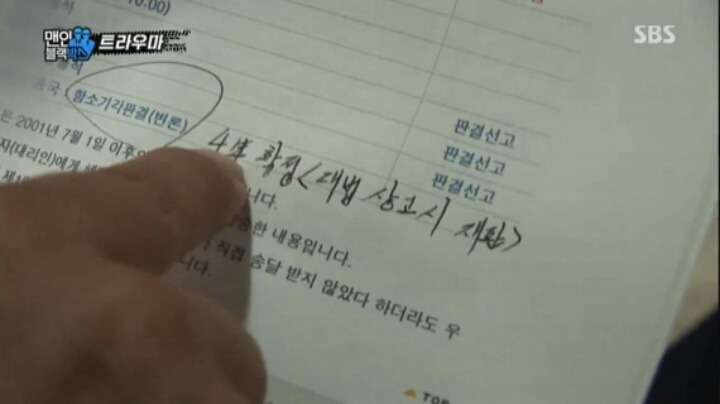 맨인
블랙박스 트라우마
SBS
10:00)
항소기각판결(변론)
판결선고
판결선고
판결선고
4年 확정<대법 상고시 재판>
은 2001년 7월 1일 이후
자(대리인)에게
니다.
한 내용입니다.
직접 송달 받지 않았다 하더라도 우
니다.
TOP